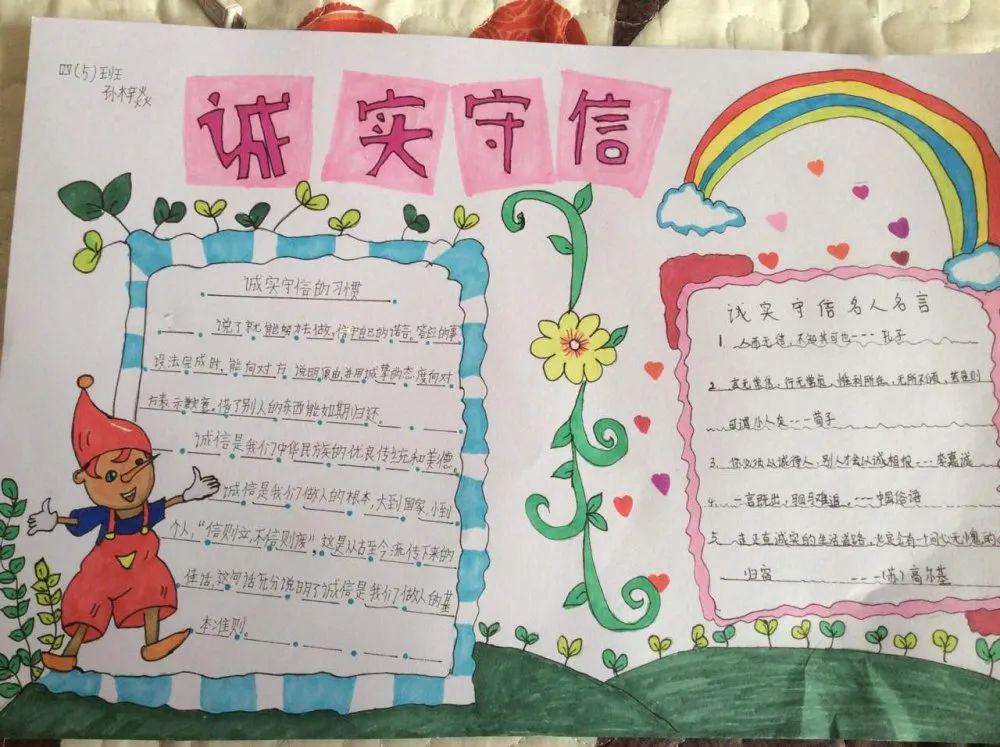 四(5)班
孙梓焱
诚实守信
诚实守信的习惯
说了就能努力去做,信守自己的诺言。答应的事
没法完成时,能向对方说明原由,并用诚挚的态度向对
方表示歉意。借了别人的东西能如期归还。
诚信是我们中华民族的优良传统和美德。
诚信是我们做人的根本,大到国家,小到
个人,“信则立,不信则废”,这是从古至今流传下来的
佳话,这句话充分说明了诚信是我们做人的基
本准则。
诚实守信名人名言
1. 人而无信,不知其可也---孔子
2. 言无常信,行无常贞,惟利所在,无所不倾,若是则
可谓小人矣---荀子
3. 你必须以诚待人,别人才会以诚相报---李嘉诚
4. 一言既出,驷马难追。---中国俗语
5. 走正直诚实的生活道路,必定会有一个问心无愧的
归宿 ---(苏)高尔基